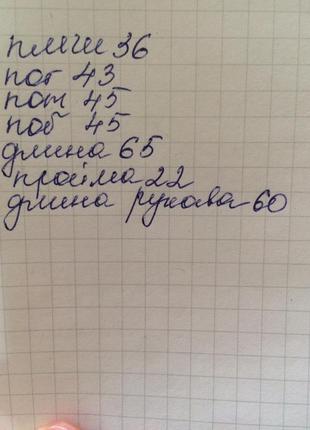 плечи 36
пог 43
пот 45
поб 45
длина 65
пройма 22
длина рукава 60